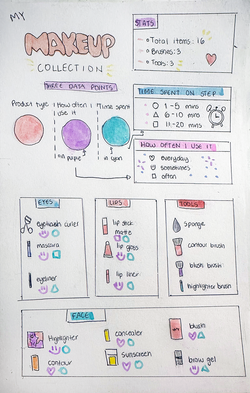 MY
MAKEUP
COLLECTION
STATS:
Total items: 16
Brushes: 3
Tools: 3
THREE DATA POINTS
Product type
How often I use it
Time spent
in purple
in cyan
TIME SPENT ON STEP
1-5 mins
6-10 mins
11-20 mins
HOW OFTEN I USE IT
everyday
sometimes
often
EYES
eyelash curler
mascara
eyeliner
LIPS
lip stick
matte
lip gloss
lip liner
TOOLS
sponge
contour brush
blush brush
highlighter brush
FACE
Highlighter
concealer
blush
contour
sunscreen
brow gel